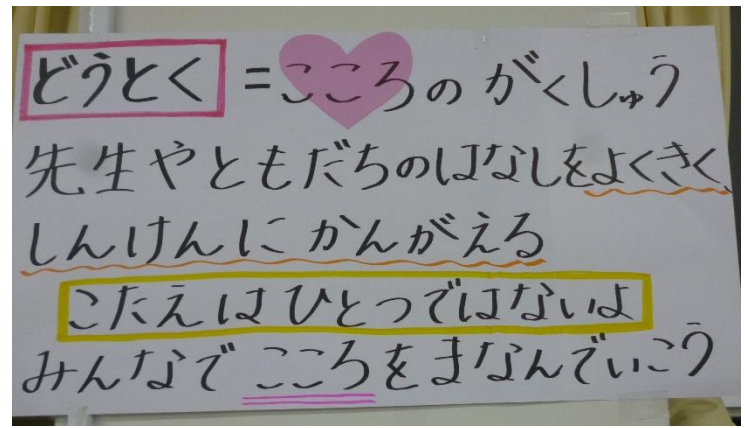 どうとく = こころの がくしゅう
先生やともだちのはなしをよくきく、
しんけんに かんがえる
こたえはひとつではないよ
みんなで こころをまなんでいこう